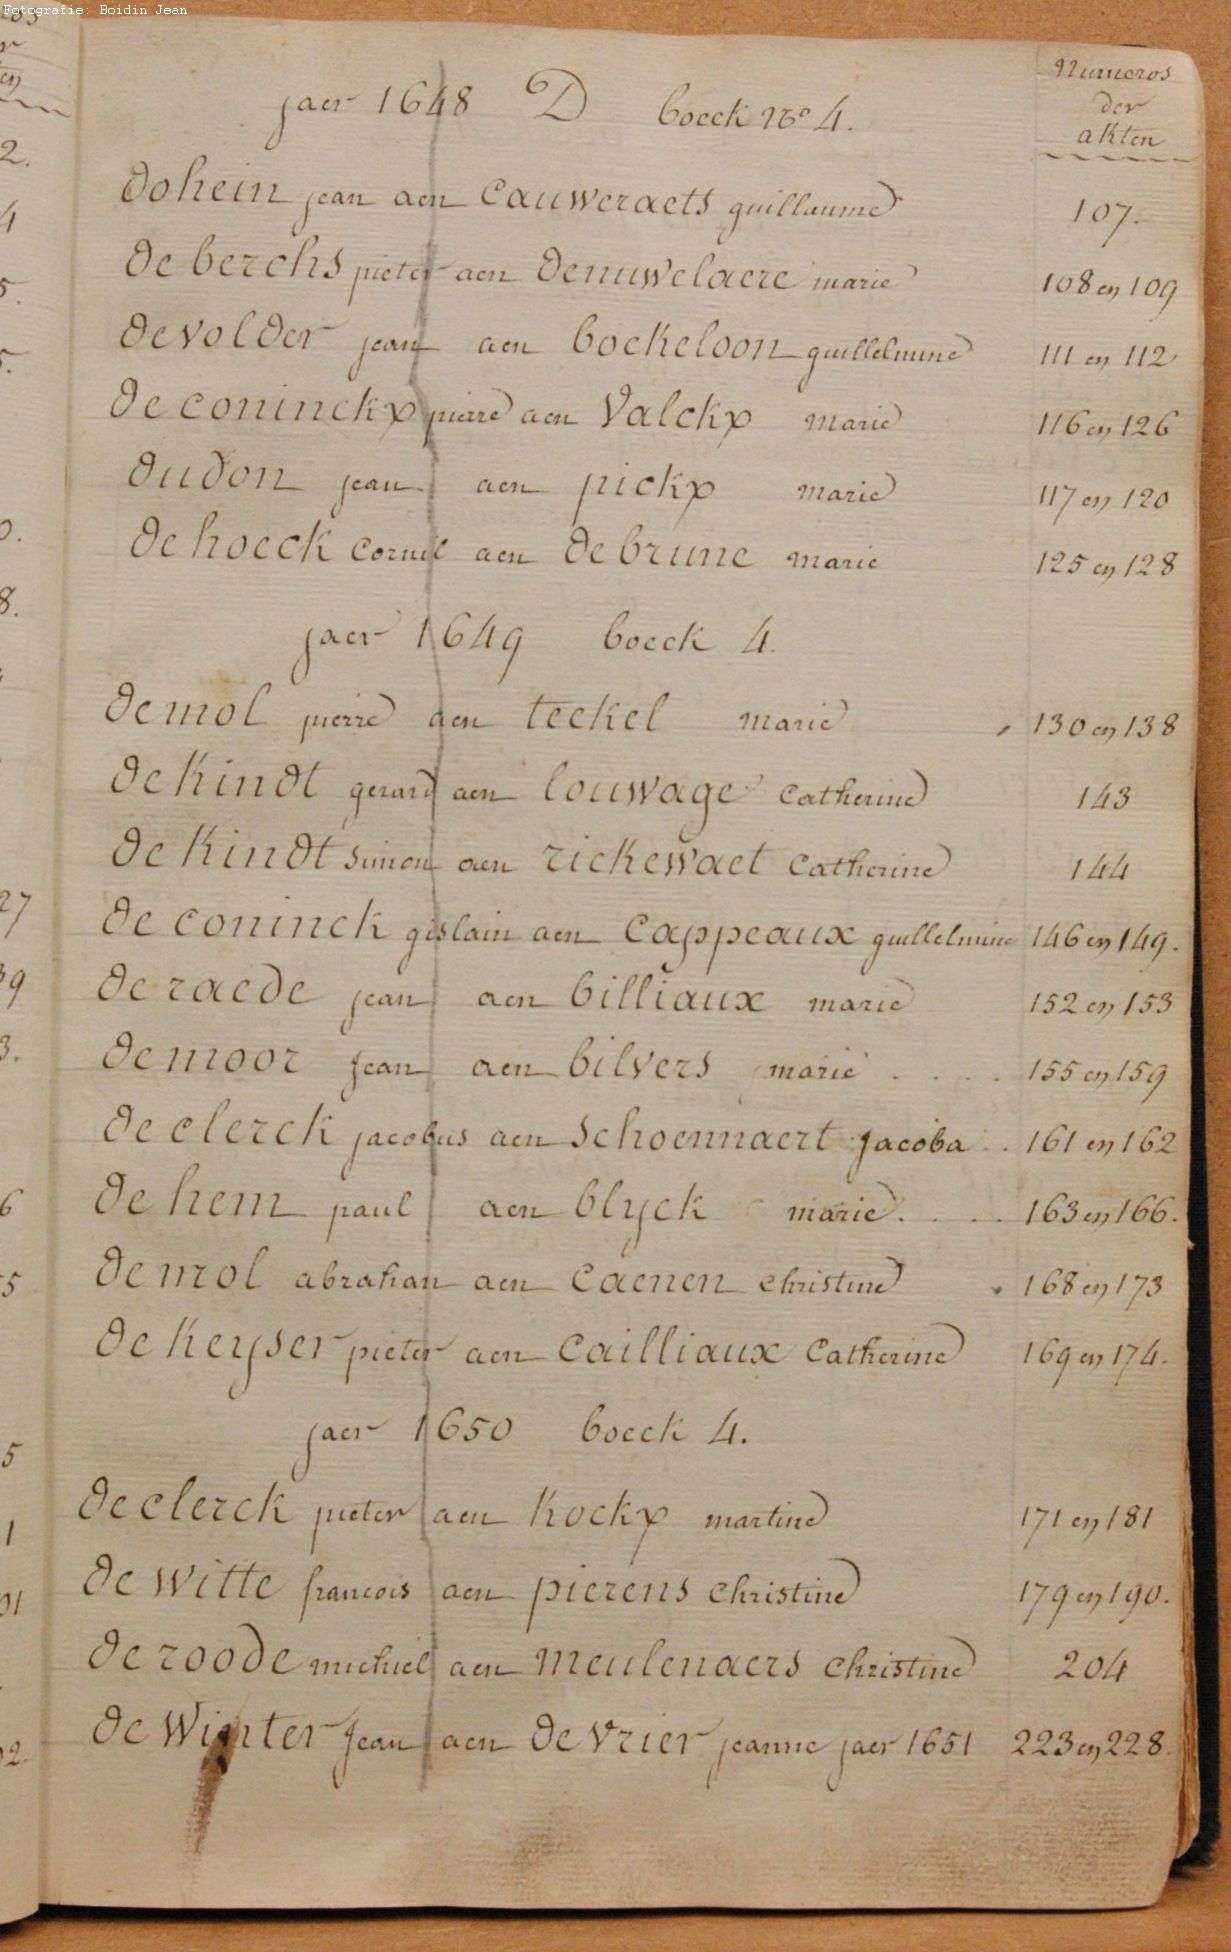 Fotografie: Boidin Jean
jaer 1648 D boeck No 4.
Numeros
der
akten
dohein jean aen Cauweraets guillaume 107.
de berchs pieter aen denuwelaere marie 108 en 109
devolder jean aen bockeloon guillelmine 111 en 112
de coninckx pierre aen Valckx marie 116 en 126
dudon jean aen pickx marie 117 en 120
de hoeck cornil aen de brune marie 125 en 128
jaer 1649 boeck 4.
demol pierre aen teckel marie 130 en 138
de Kindt gerard aen louwage Catherine 143
de Kindt simon aen rickewaet Catherine 144
de coninck gislain aen Cappeaux guillelmine 146 en 149.
de raede jean aen billiaux marie 152 en 153
demoor jean aen bilvers marie . . . . 155 en 159
de clerck jacobus aen Schoennaert Jacoba . . 161 en 162
de hem paul aen blyck marie . . . . 163 en 166.
demol abraham aen Caenen christine 168 en 173
de Keyser pieter aen Cailliaux Catherine 169 en 174.
jaer 1650 boeck 4.
de clerck pieter aen Kockx martine 171 en 181
de witte francois aen pierens christine 179 en 190.
de roode michiel aen meulenaers christine 204
de Winter Jean aen de vrier jeanne jaer 1651 223 en 228.